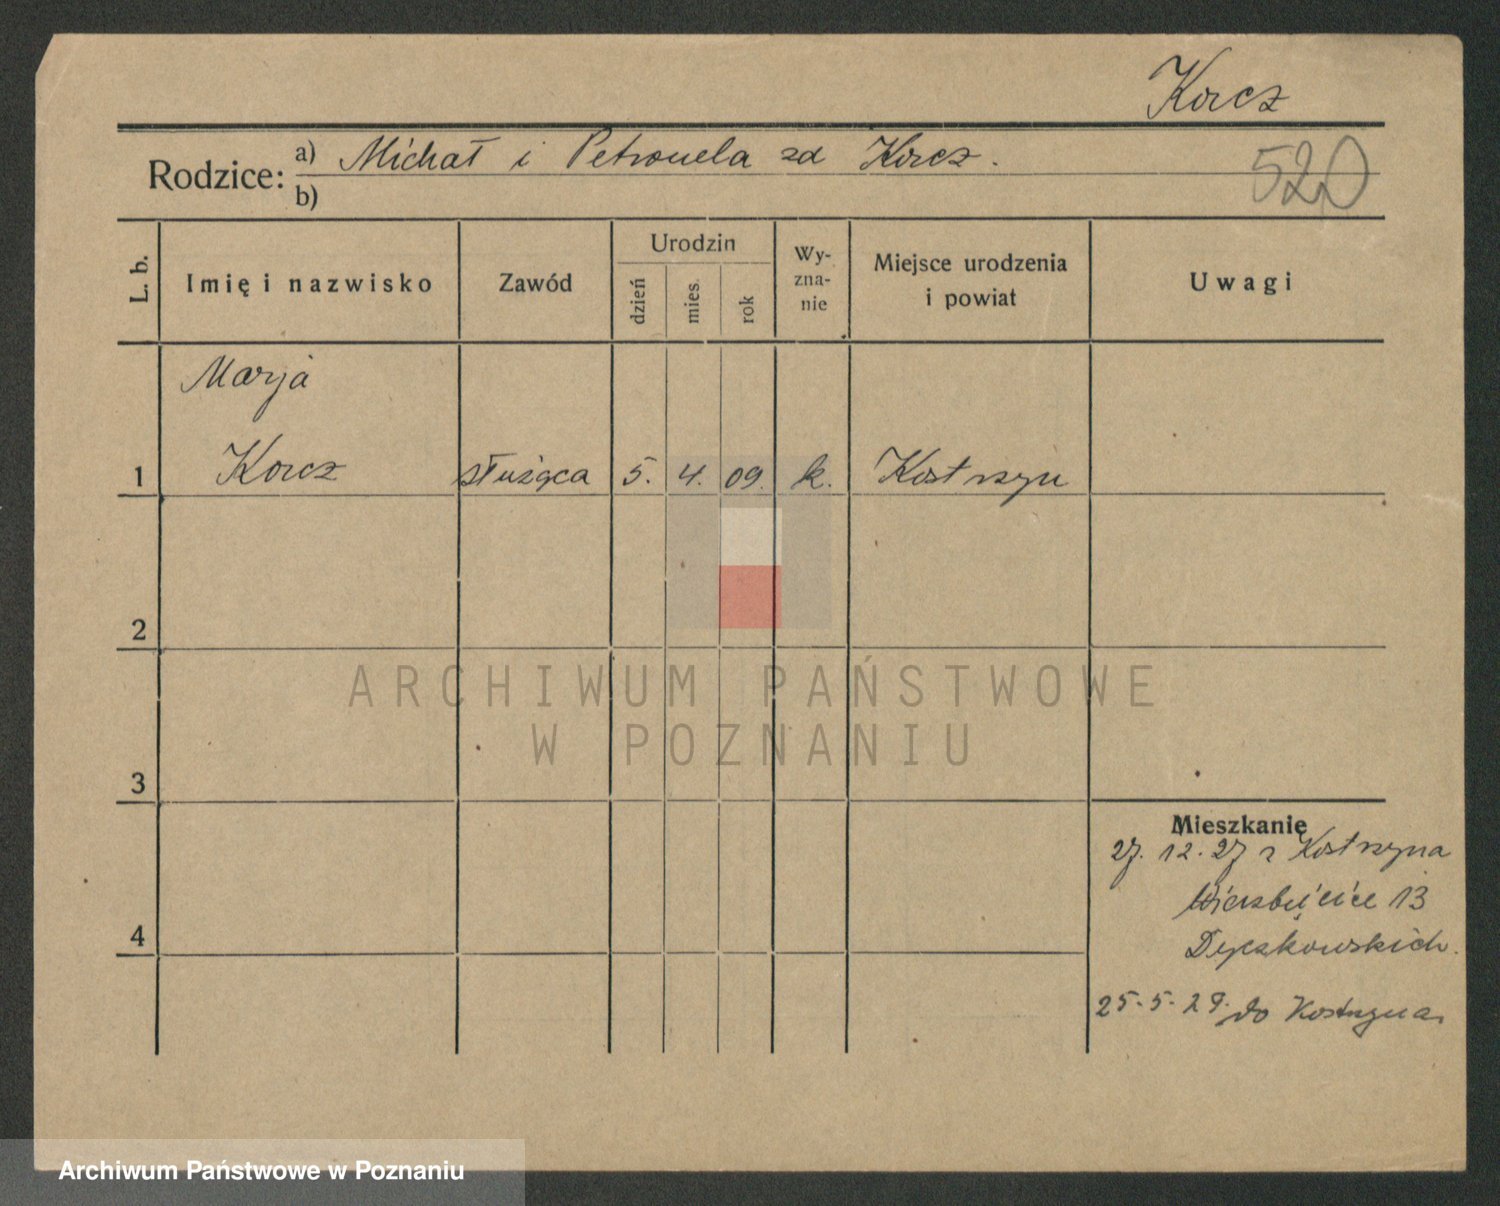 Korcz
Rodzice: a) Michał i Petronela zd Korcz.
b)
520
L. b.
Imię i nazwisko
Zawód
Urodzin
dzień
mies.
rok
Wy-
zna-
nie
Miejsce urodzenia
i powiat
Uwagi
Marja
1 Korcz służąca 5. 4. 09. k. Kostrzyn
2
ARCHIWUM PAŃSTWOWE
W POZNANIU
3
Mieszkanie
27. 12. 27 z Kostrzyna
Wierzbięcice 13
4
25.5.29. do Kostrzyna
Archiwum Państwowe w Poznaniu